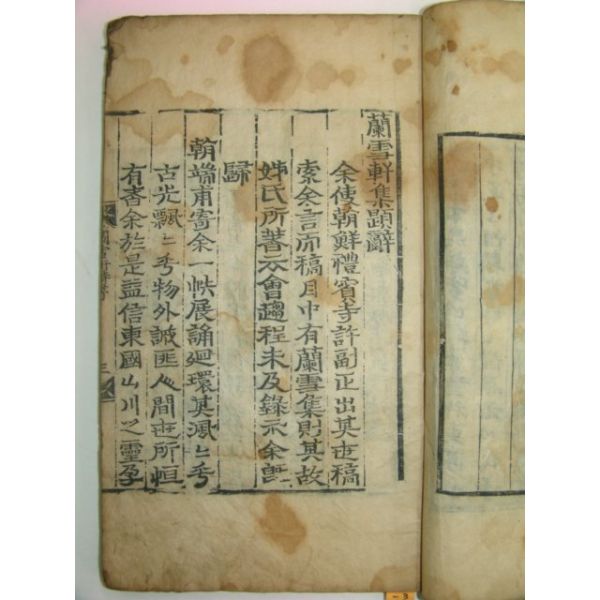 蘭雪軒集題辭
余使朝鮮禮賓寺許副正出其世稿
索余言而稿目中有蘭雪集則其故
姊氏所著云會趨程未及錄示余旣
歸
朝端甫寄余一帙展誦廻環其渢〻乎
古光飄〻乎物外誠匪人間世所恒
有者余於是益信東國山川之靈孕
三